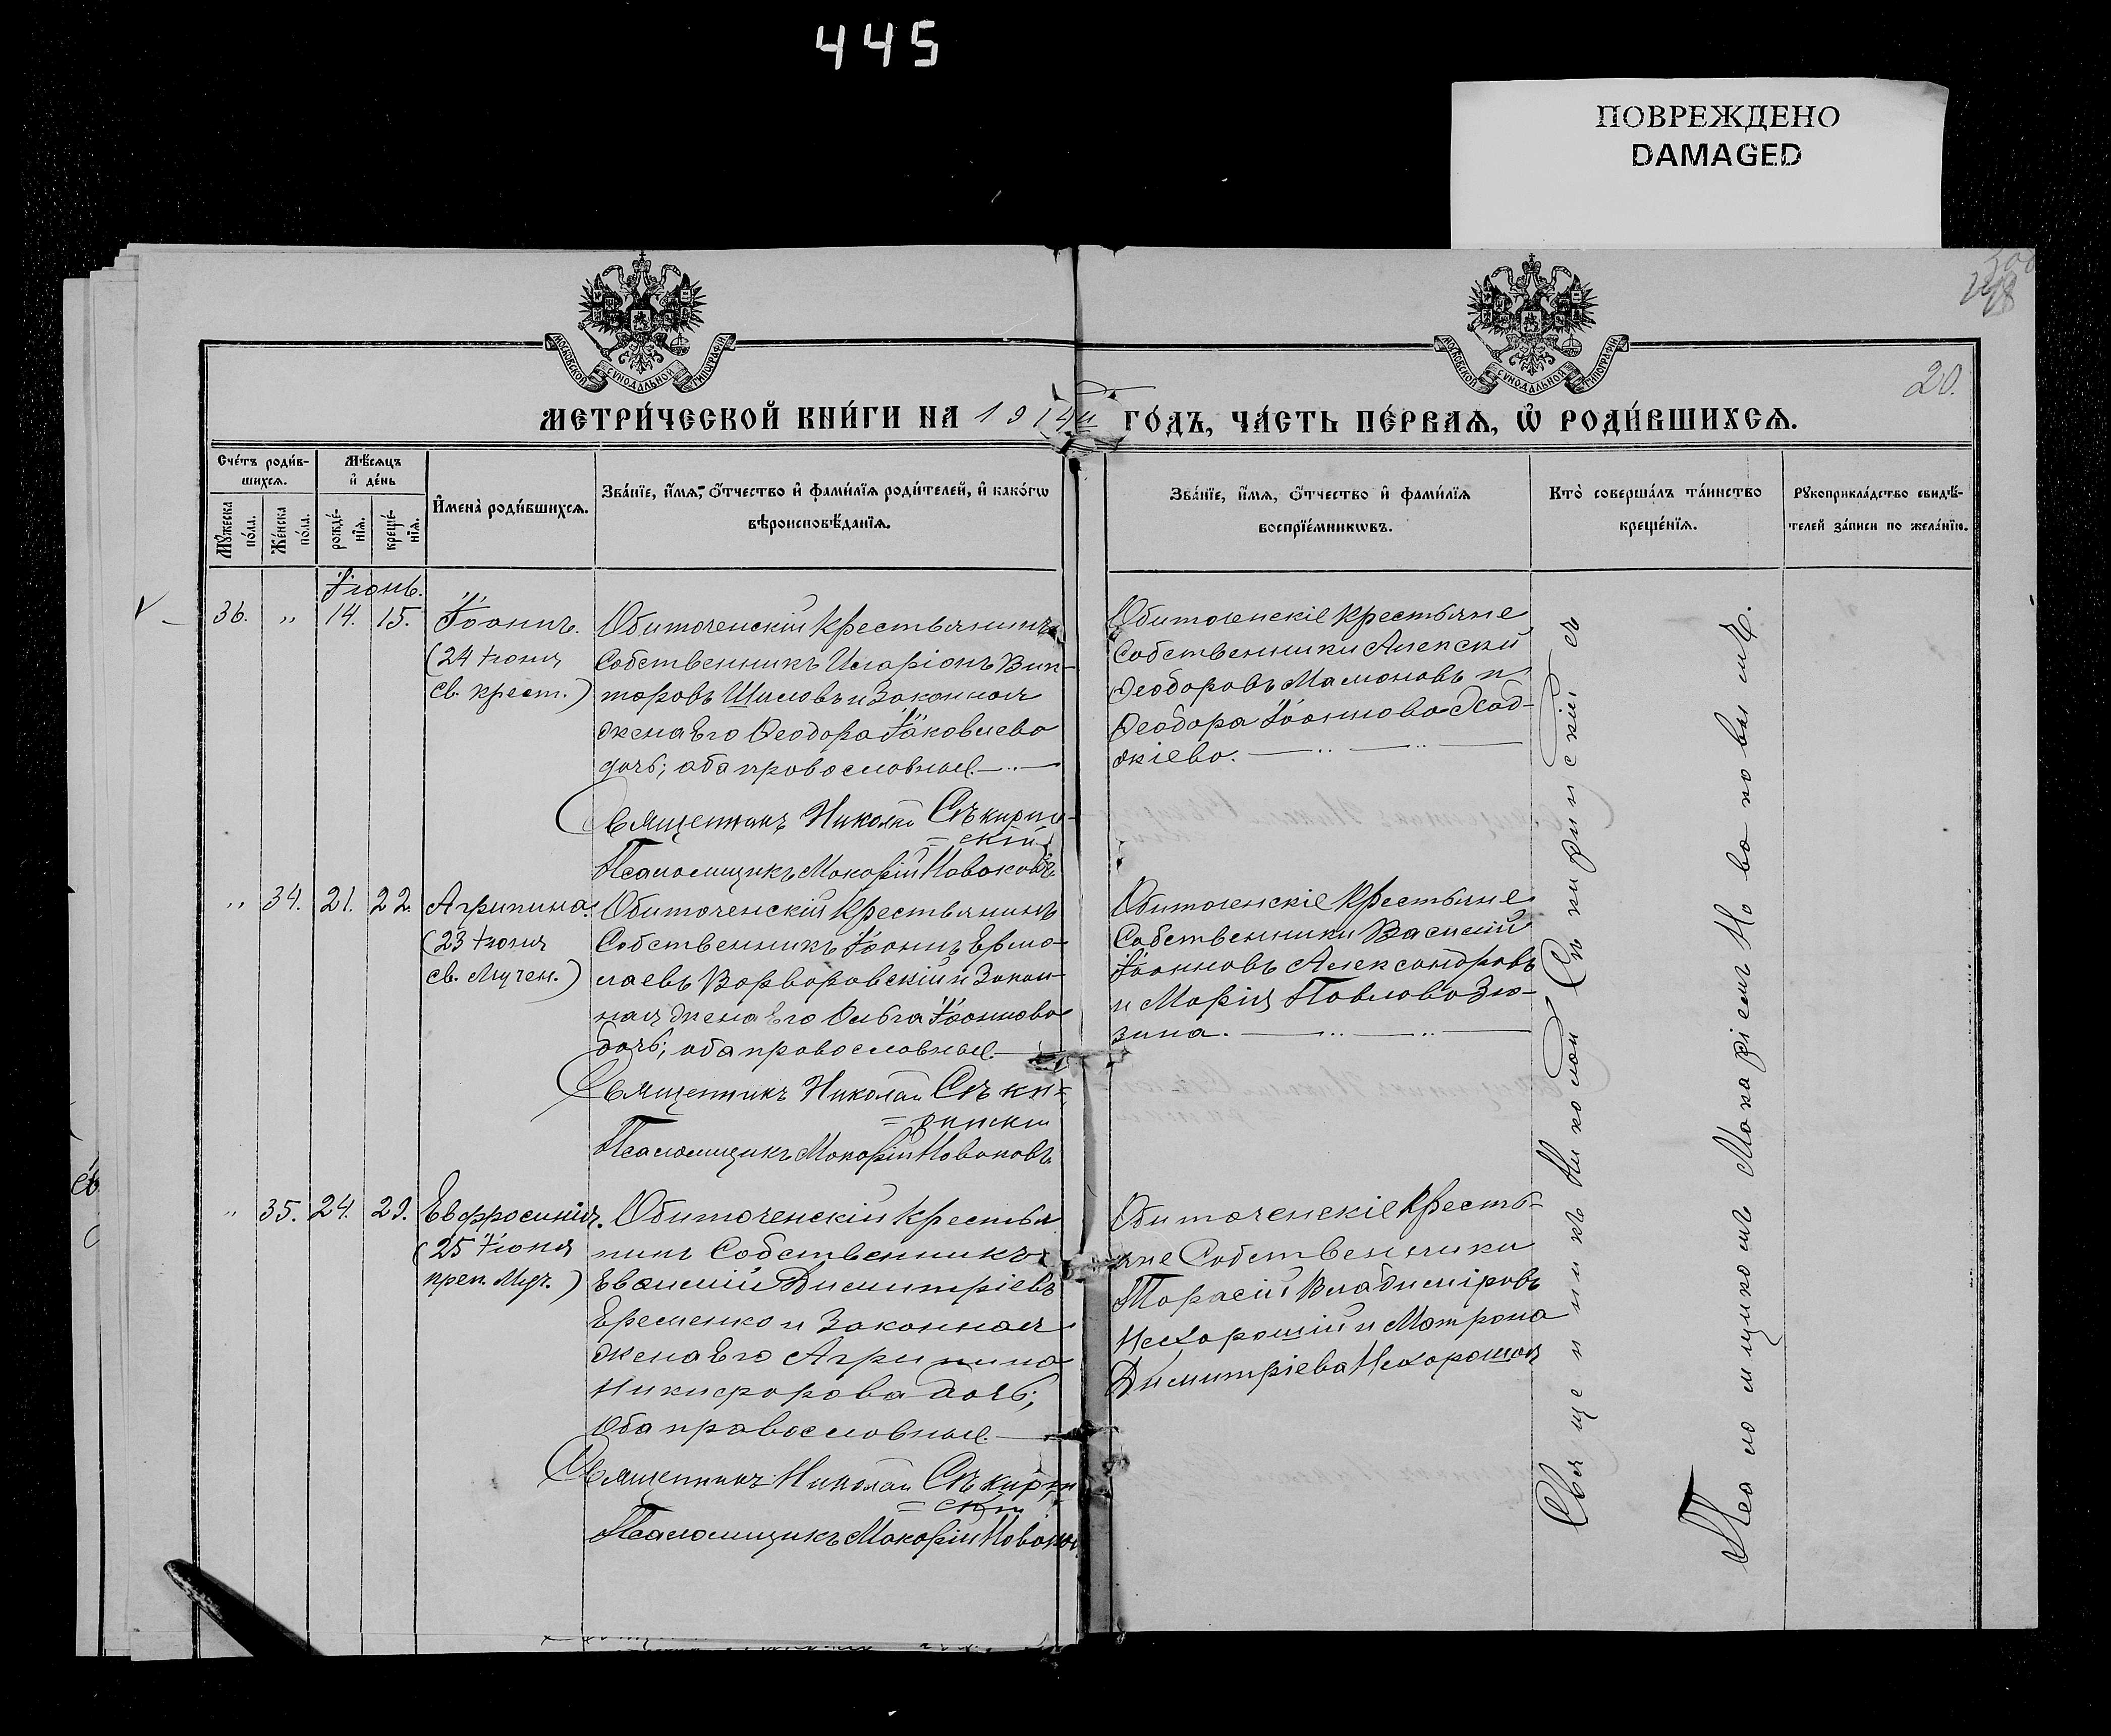 445
ПОВРЕЖДЕНО
DAMAGED
МОСКОВСКОЙ СУНОДАЛЬНОЙ ТИПОГРАФІИ
МОСКОВСКОЙ СУНОДАЛЬНОЙ ТИПОГРАФІИ
20.
МЕТРИ́ЧЕСКОЙ КНИ́ГИ НА 1914й ГО́ДЪ, ЧА́СТЬ ПЕ́РВАѦ, Ѡ҆ РОДИ́ВШИХСѦ.
Сче́тъ роди́в-
шихсѧ.
Мѣ́сѧцъ
и҆ де́нь
Му́жеска по́ла.
Же́нска по́ла.
рожде́-
нїѧ.
креще́-
нїѧ.
И҆мена̀ роди́вшихсѧ.
Зва́нїе, и҆́мѧ, ѻ҆́тчество и҆ фами́лїѧ роди́телей, и҆ како́гѡ
вѣроисповѣ́данїѧ.
Зва́нїе, и҆́мѧ, ѻ҆́тчество и҆ фами́лїѧ
воспрїе́мникѡвъ.
Кто̀ соверша́лъ та́инство
креще́нїѧ.
Рукоприкла́дство свидѣ́-
телей за́писи по жела́нїю.
Іюнь.
36. „ 14. 15. Іоаннъ.
(24 Іюня
св. крест.)
Обиточенскій крестьянинъ
Собственникъ Иларіонъ Вик-
торовъ Шиловъ и Законная
жена Его Ѳеодора Іаковлева
дочь; оба православные.
Священникъ Николай Сѣкирин-
=скій
Псаломщикъ Макарій Новаковъ
Обиточенскіе Крестьяне
Собственники Алексѣй
Ѳеодоровъ Мамоновъ и
Ѳеодора Іоаннова Хад-
жіева.
„ 34. 21. 22. Агрипина.
(23 Іюня
св. Мучен.)
Обиточенскій Крестьянинъ
Собственникъ Іоаннъ Ермо-
лаевъ Варваровскій и Закон-
ная жена Его Ольга Іоаннова
дочь; оба православные.
Священникъ Николай Сѣки-
=ринскій
Псаломщикъ Макарій Новаковъ
Обиточенскіе Крестьяне
Собственники Василій
Іоанновъ Александровъ
и Марія Павлова Зю-
зина.
„ 35. 24. 29. Евфросинія.
(25 Іюня
преп. Муч.)
Обиточенскій Крестья
нинъ Собственникъ
Евѳимій Димитріевъ
Еременко и Законная
жена Его Агрипина
Никифорова дочь;
Оба православные.
Священникъ Николай Сѣкирин
=скій
Псаломщикъ Макарій Новаков
Обиточенскіе Кресть-
яне Собственники
Тарасій Владиміровъ
Нехорошій и Матрона
Димитріева Нехорошая
Священникъ Николай Сѣкиринскій съ
Псаломщикомъ Макаріемъ Новаковымъ.